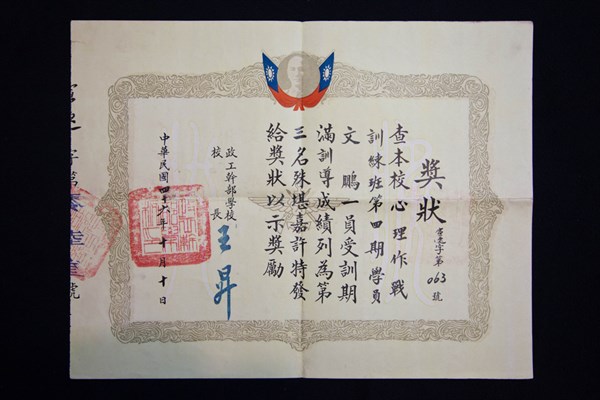 獎狀
字第063號
查本校心理作戰
訓練班第四期學員
文鵬一員受訓期
滿訓導成績列為第
三名殊堪嘉許特發
給獎狀以示獎勵
政工幹部學校
校長
王昇
中華民國四十六年十月十日
字第
號